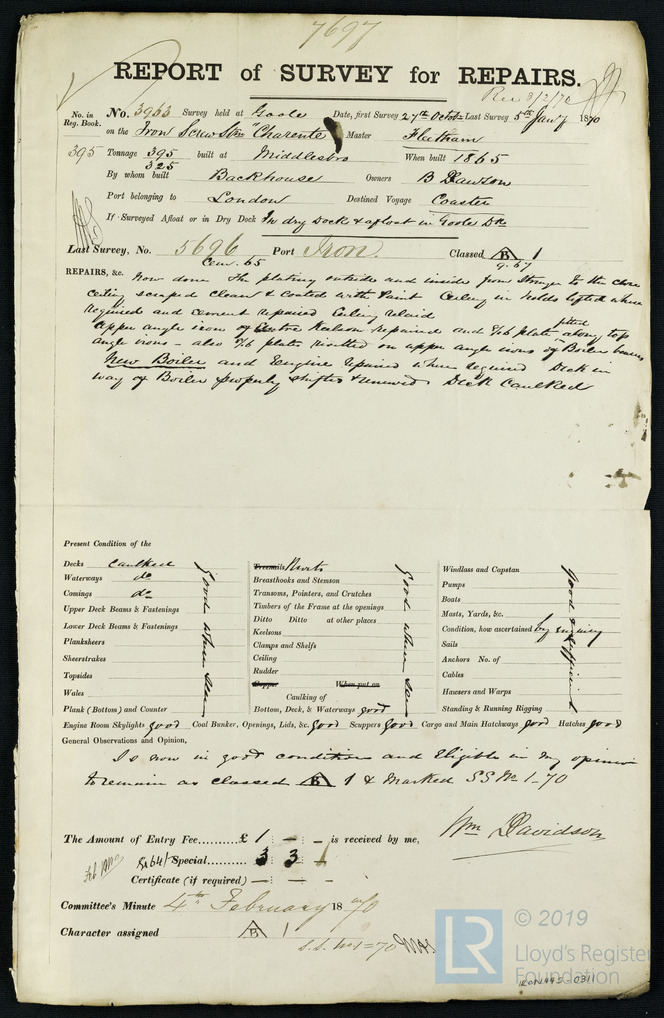 7697
REPORT of SURVEY for REPAIRS.
Rec 3/2/70
No. in Reg. Book. No. 3963 Survey held at Goole Date, first Survey 27th Octobr Last Survey 5th Jany 1870
on the Iron Screw Str "Charente" Master Fleetham
395 Tonnage 395 built at Middlesbro When built 1865
325
By whom built Backhouse Owners B Dawson
Port belonging to London Destined Voyage Coaster
If Surveyed Afloat or in Dry Dock In dry Dock & afloat in Goole Dk
Last Survey, No. 5696 Port Iron Classed B 1
Cem. 65 9.67
REPAIRS, &c. Now done The plating outside and inside from Stringer to the
ceiling scraped clean & coated with Paint Ceiling in holds lifted where
required and cement repaired Ceiling relaid
Upper angle irons of Centre Keelson repaired and 7/16 plate fitted along top
angle irons - also 7/16 plates rivetted on upper angle irons of Boiler bearers
New Boiler and Engine repaired where required Deck in
way of Boiler properly shifted & renewed Deck Caulked
Present Condition of the
Decks caulked
Waterways do
Comings do
Upper Deck Beams & Fastenings
Lower Deck Beams & Fastenings
Planksheers
Sheerstrakes
Topsides
Wales
Plank (Bottom) and Counter
Good where seen
Treenails Rivets
Breasthooks and Stemson
Transoms, Pointers, and Crutches
Timbers of the Frame at the openings
Ditto Ditto at other places
Keelsons
Clamps and Shelfs
Ceiling
Rudder
Copper When put on
Caulking of
Bottom, Deck, & Waterways good
Good where seen
Windlass and Capstan
Pumps
Boats
Masts, Yards, &c.
Condition, how ascertained by enquiry
Sails
Anchors No. of
Cables
Hawsers and Warps
Standing & Running Rigging
Good & Sufficient
Engine Room Skylights good Coal Bunker, Openings, Lids, &c. good Scuppers good Cargo and Main Hatchways good Hatches good
General Observations and Opinion,
Is now in good condition and Eligible in my opinion
to remain as classed B 1 & Marked SS No 1-70
The Amount of Entry Fee..........£ 1 : - : - is received by me,
Wm Davidson
Special.......... 3 : 3 :
Certificate (if required) - : - : -
Committee's Minute 4th February 1870
Character assigned B 1
S.S. No 1=70
LR
© 2019
Lloyd's Register
Foundation
IRON445-0311